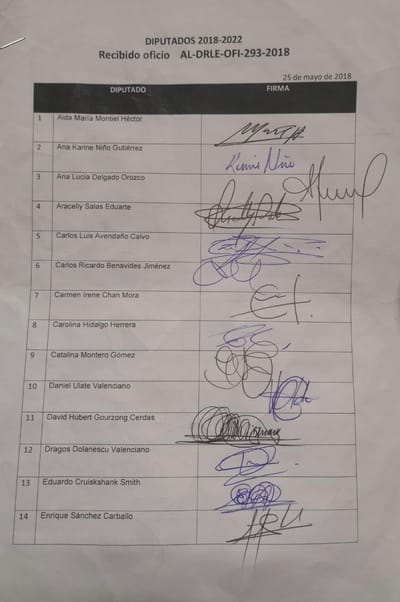 DIPUTADOS 2018-2022
Recibido oficio AL-DRLE-OFI-293-2018
25 de mayo de 2018
DIPUTADO FIRMA
1 Aida María Montiel Héctor
2 Ana Karine Niño Gutiérrez Karine Niño
3 Ana Lucía Delgado Orozco
4 Aracelly Salas Eduarte
5 Carlos Luis Avendaño Calvo
6 Carlos Ricardo Benavides Jiménez
7 Carmen Irene Chan Mora
8 Carolina Hidalgo Herrera
9 Catalina Montero Gómez
10 Daniel Ulate Valenciano
11 David Hubert Gourzong Cerdas
12 Dragos Dolanescu Valenciano
13 Eduardo Cruiskshank Smith
14 Enrique Sánchez Carballo